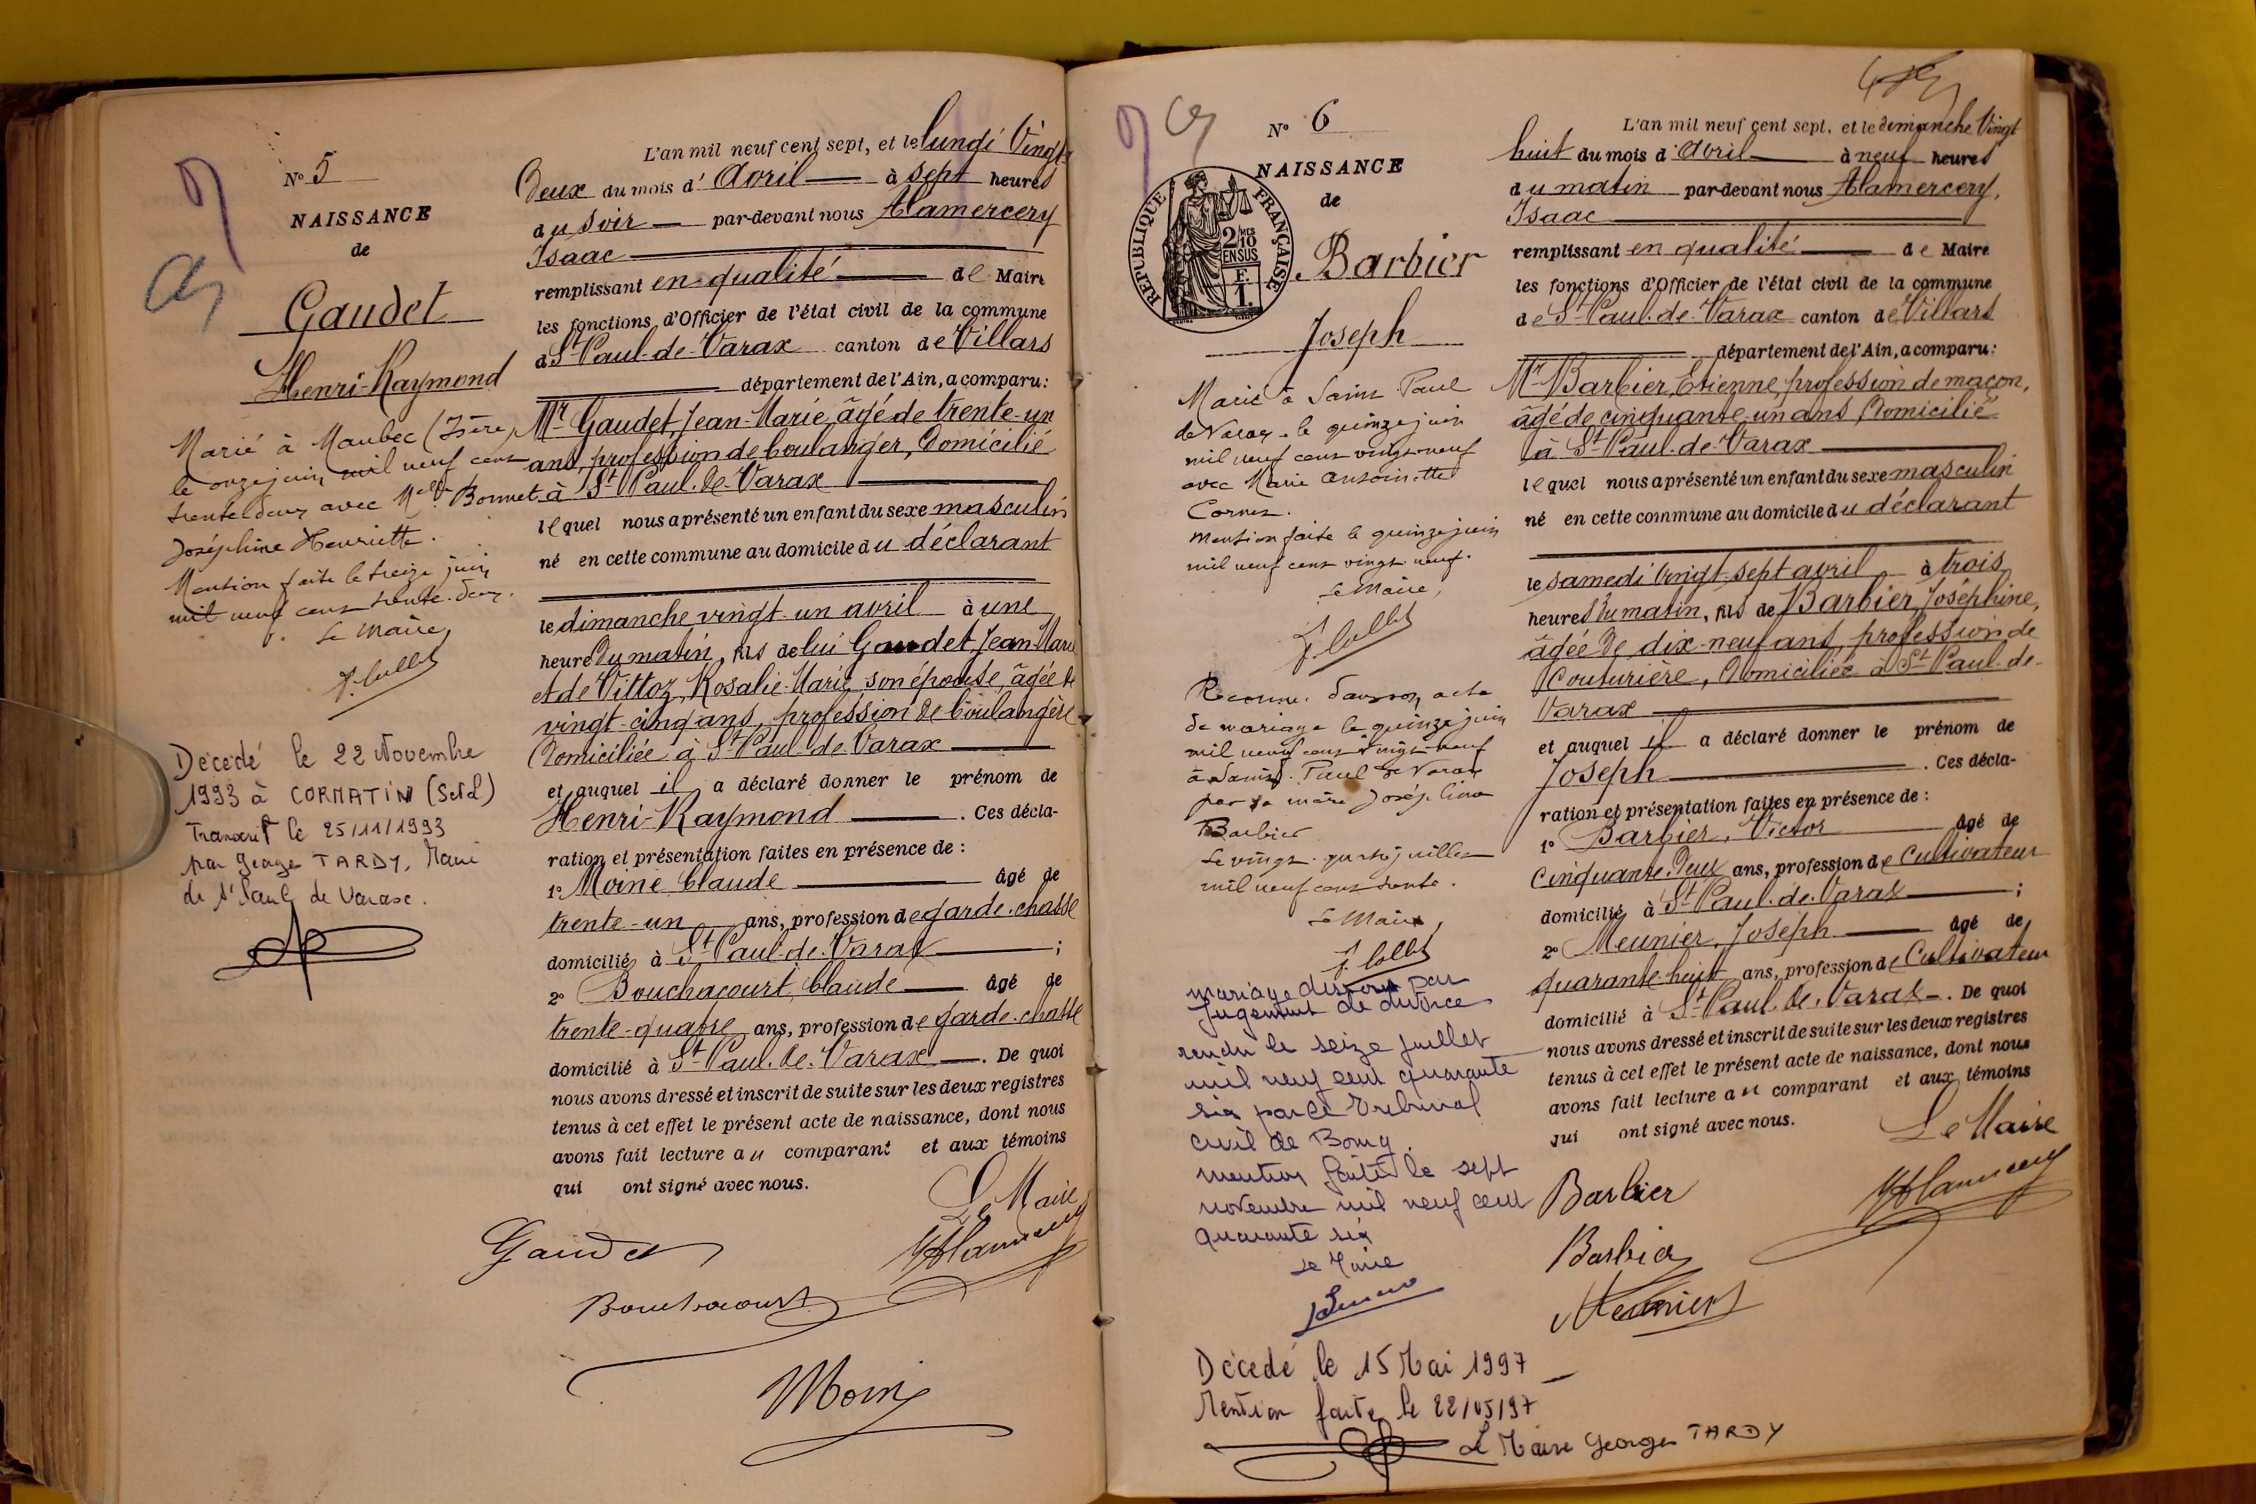 N° 5
NAISSANCE
de
Gaudet
Henri-Raymond
Marié à Maubec (Isère)
le onze juin mil neuf cent
trente deux avec Melle Bonnet
Joséphine Henriette.
Mention faite le treize juin
mil neuf cent trente-deux.
Le Maire,
J. Collet
Décédé le 22 Novembre
1993 à CORMATIN (S et L)
Transcrit le 25/11/1993
par George TARDY, Maire
de St Paul de Varax.
L'an mil neuf cent sept, et le lundi Vingt-
deux du mois d'Avril à sept heures
du soir par-devant nous Alamercery
Isaac
remplissant en qualité de Maire
les fonctions d'Officier de l'état civil de la commune
d St Paul-de-Varax canton de Villars
département de l'Ain, a comparu:
Mr Gaudet, Jean-Marie, âgé de trente-un
ans, profession de boulanger, domicilié
à St Paul-de-Varax
lequel nous a présenté un enfant du sexe masculin
né en cette commune au domicile du déclarant
le dimanche vingt-un avril à une
heure du matin, fils de lui Gaudet Jean-Marie
et de Vittoz, Rosalie-Marie, son épouse, âgée de
vingt-cinq ans, profession de boulangère
domiciliée à St Paul-de-Varax
et auquel il a déclaré donner le prénom de
Henri-Raymond. Ces décla-
ration et présentation faites en présence de :
1° Moine Claude âgé de
trente-un ans, profession de garde-chasse
domicilié à St Paul-de-Varax ;
2° Bouchacourt, Claude âgé de
trente-quatre ans, profession de garde-chasse
domicilié à St Paul-de-Varax. De quoi
nous avons dressé et inscrit de suite sur les deux registres
tenus à cet effet le présent acte de naissance, dont nous
avons fait lecture au comparant et aux témoins
qui ont signé avec nous.
Le Maire
Gaudet
Alamercery
Bouchacourt
Moine
N° 6
NAISSANCE
de
RÉPUBLIQUE FRANÇAISE
2/10
EN SUS
Barbier
Joseph
Marié à Saint Paul
de Varax le quinze juin
mil neuf cent vingt-neuf
avec Marie Antoinette
Mention faite le quinze juin
mil neuf cent vingt-neuf.
Le Maire,
J. Collet
Reconnu dans son acte
de mariage le quinze juin
mil neuf cent vingt neuf
à Saint-Paul de Varax
par sa mère Joséphine
Barbier
Le vingt-quatre juillet
mil neuf cent trente.
Le Maire,
J. Collet
mariage dissous par
jugement de divorce
rendu le seize juillet
mil neuf cent quarante
six par le tribunal
civil de Bourg.
mention faite le sept
novembre mil neuf cent
quarante six
Le Maire
Décédé le 15 Mai 1997
Mention faite le 22/05/97
Le Maire Georges TARDY
L'an mil neuf cent sept, et le dimanche Vingt
huit du mois d'Avril à neuf heures
du matin par-devant nous Alamercery,
Isaac
remplissant en qualité de Maire
les fonctions d'Officier de l'état civil de la commune
de St Paul-de-Varax canton de Villars
département de l'Ain, a comparu:
Mr Barbier, Etienne, profession de maçon,
âgé de cinquante-un ans, domicilié
à St Paul-de-Varax
lequel nous a présenté un enfant du sexe masculin
né en cette commune au domicile du déclarant
le samedi vingt-sept avril à trois
heures du matin, fils de Barbier, Joséphine,
âgée de dix-neuf ans, profession de
couturière, domiciliée à St Paul-de-
Varax
et auquel il a déclaré donner le prénom de
Joseph. Ces décla-
ration et présentation faites en présence de :
1° Barbier, Victor âgé de
cinquante-deux ans, profession de cultivateur
domicilié à St Paul-de-Varax ;
2° Meunier, Joseph âgé de
quarante-huit ans, profession de cultivateur
domicilié à St Paul-de-Varax. De quoi
nous avons dressé et inscrit de suite sur les deux registres
tenus à cet effet le présent acte de naissance, dont nous
avons fait lecture au comparant et aux témoins
qui ont signé avec nous.
Le Maire
Barbier
Alamercery
Barbier
Meunier